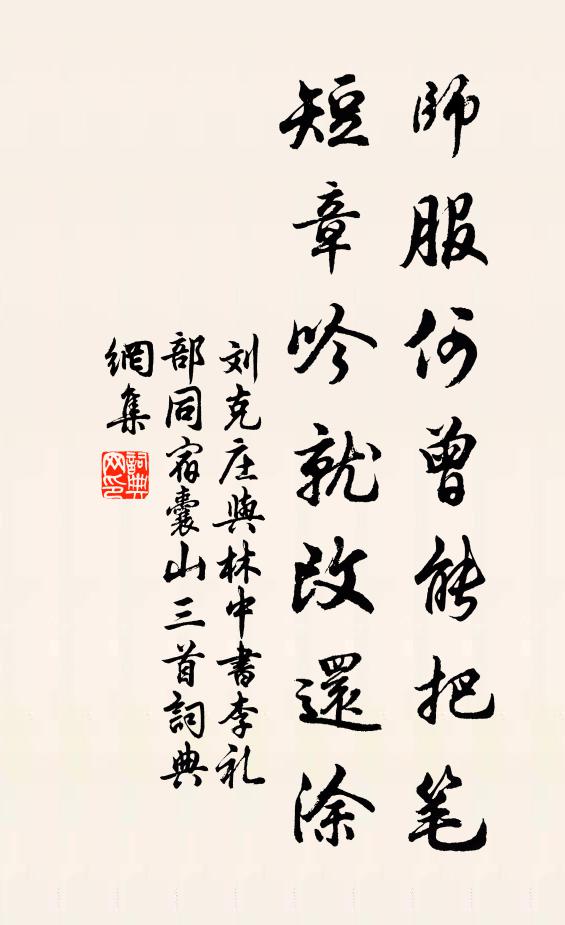 師服何曾能把笔
短章吟就改還涂
刘克庄與林中書李礼
部同宿囊山三首詞典
網集
詞典
网印